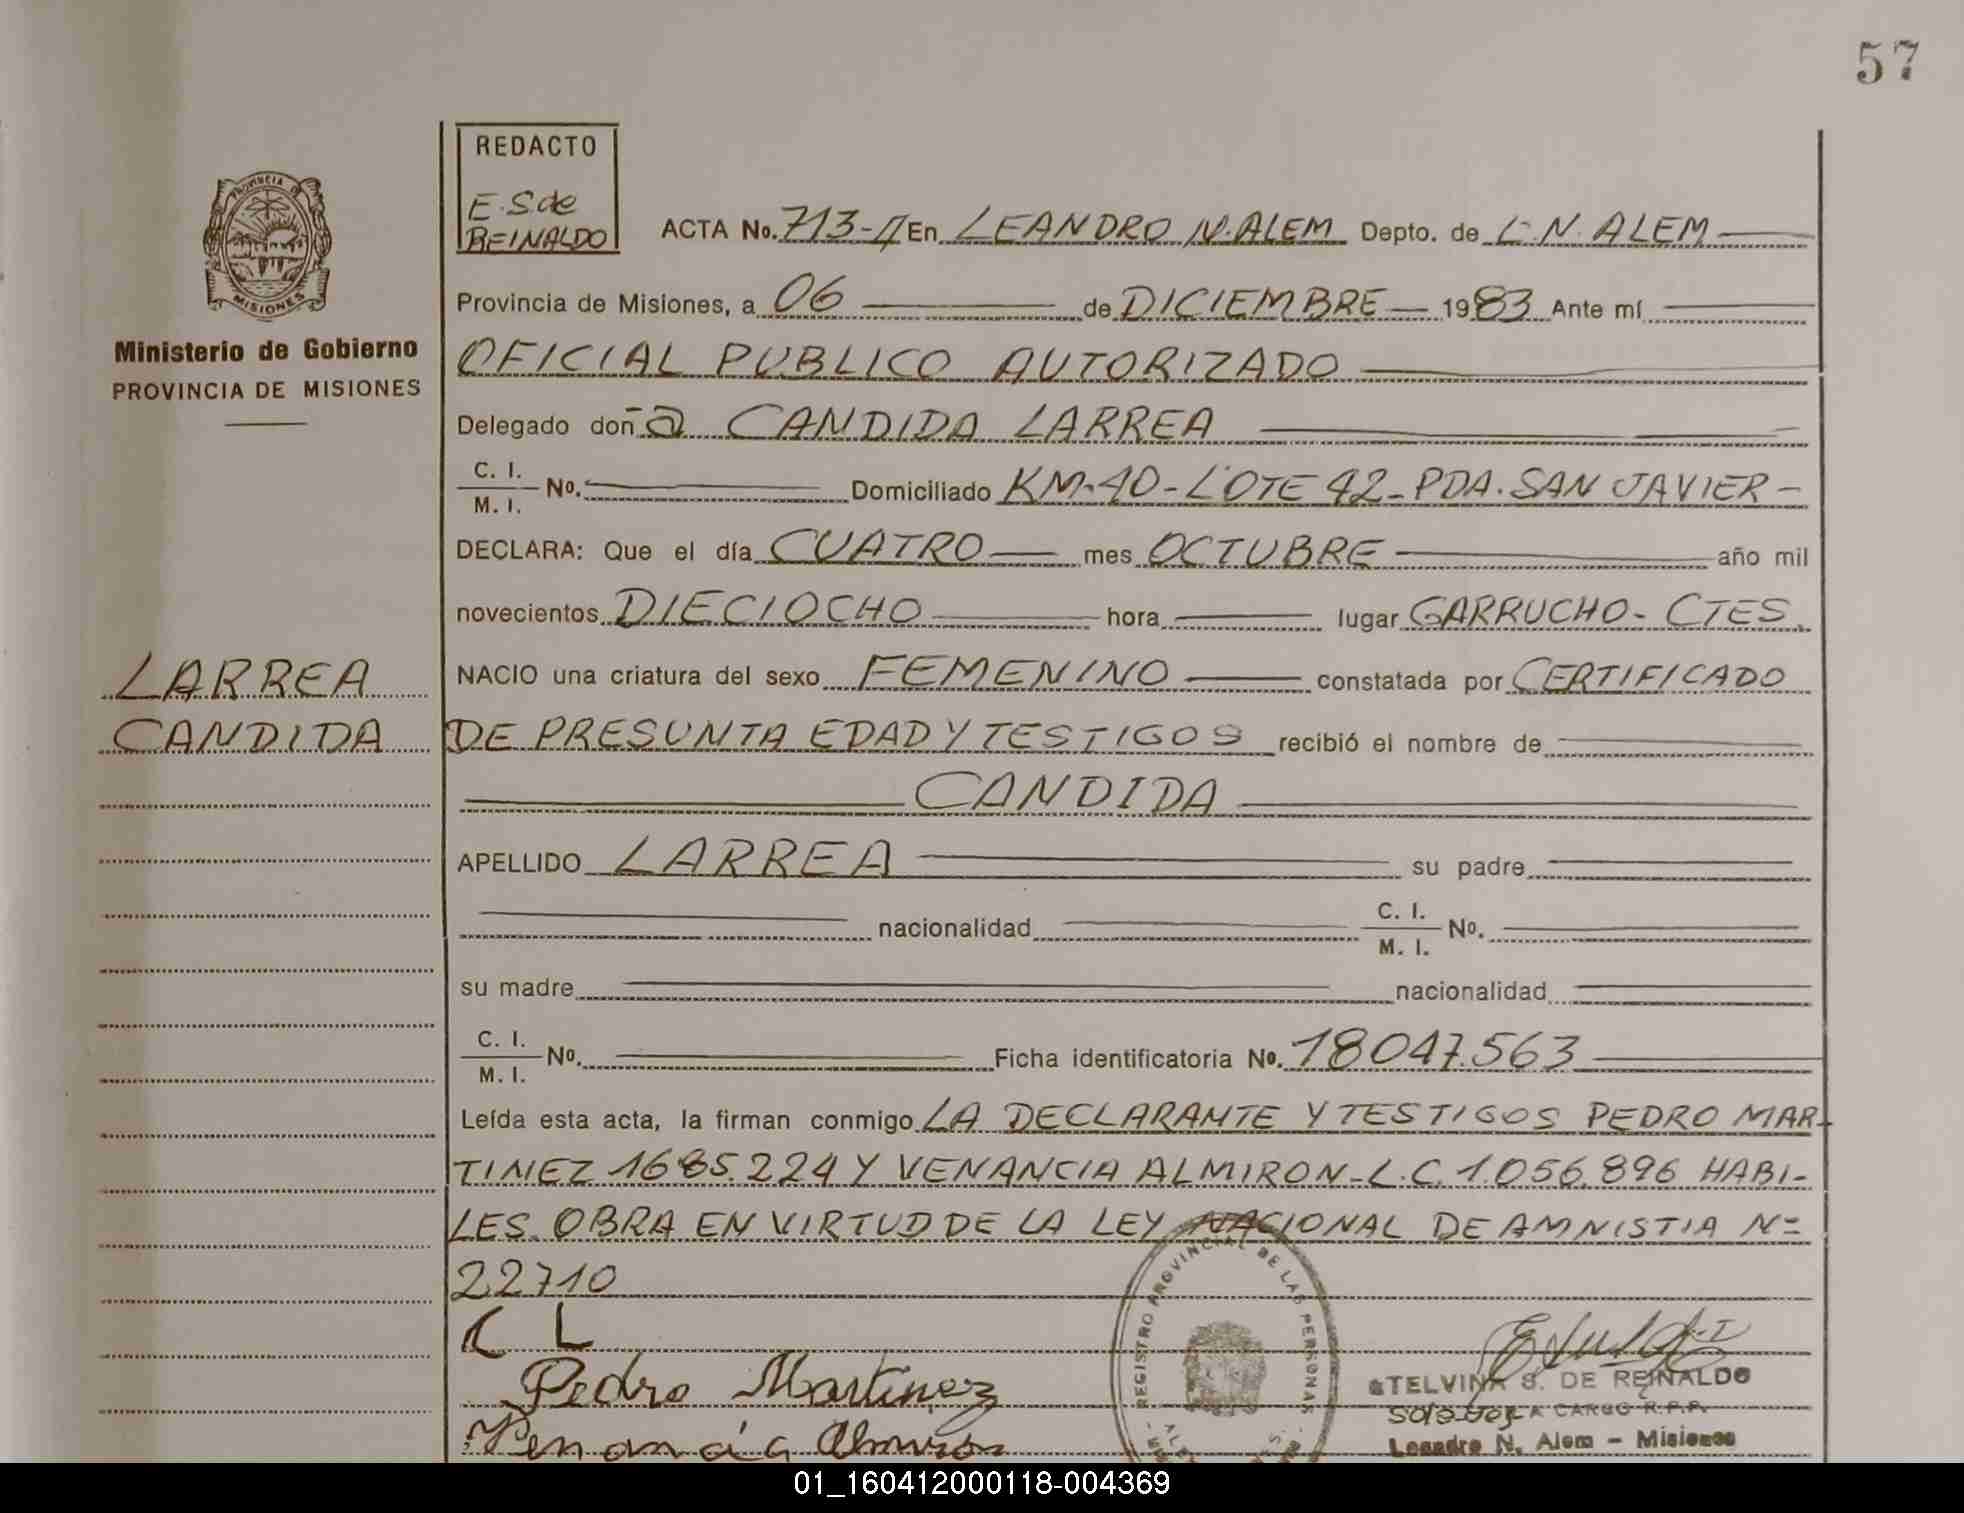 57
REDACTO
E.S.de
REINALDO
PROVINCIA DE
MISIONES
Ministerio de Gobierno
PROVINCIA DE MISIONES
ACTA No. 713-A En LEANDRO N. ALEM Depto. de L. N. ALEM
Provincia de Misiones, a 06 de DICIEMBRE 1983 Ante mí
OFICIAL PUBLICO AUTORIZADO
Delegado doña CANDIDA LARREA
C. I.
M. I. No. Domiciliado KM-10-LOTE 42-PDA. SAN JAVIER-
DECLARA: Que el día CUATRO mes OCTUBRE año mil
novecientos DIECIOCHO hora lugar GARRUCHO-CTES.
LARREA
CANDIDA
NACIO una criatura del sexo FEMENINO constatada por CERTIFICADO
DE PRESUNTA EDAD Y TESTIGOS recibió el nombre de
CANDIDA
APELLIDO LARREA su padre
nacionalidad C. I.
M. I. No.
su madre nacionalidad
C. I.
M. I. No. Ficha identificatoria No. 18047.563
Leída esta acta, la firman conmigo LA DECLARANTE Y TESTIGOS PEDRO MAR-
TINEZ 1685.224 Y VENANCIA ALMIRON-L.C. 1.056.896 HABI-
LES. OBRA EN VIRTUD DE LA LEY NACIONAL DE AMNISTIA Nº
22710
C L
Pedro Martinez
Venancia Almiron
REGISTRO PROVINCIAL DE LAS PERSONAS
ETELVINA S. DE REINALDO
A CARGO R.P.P.
Leandro N. Alem - Misiones
01_160412000118-004369